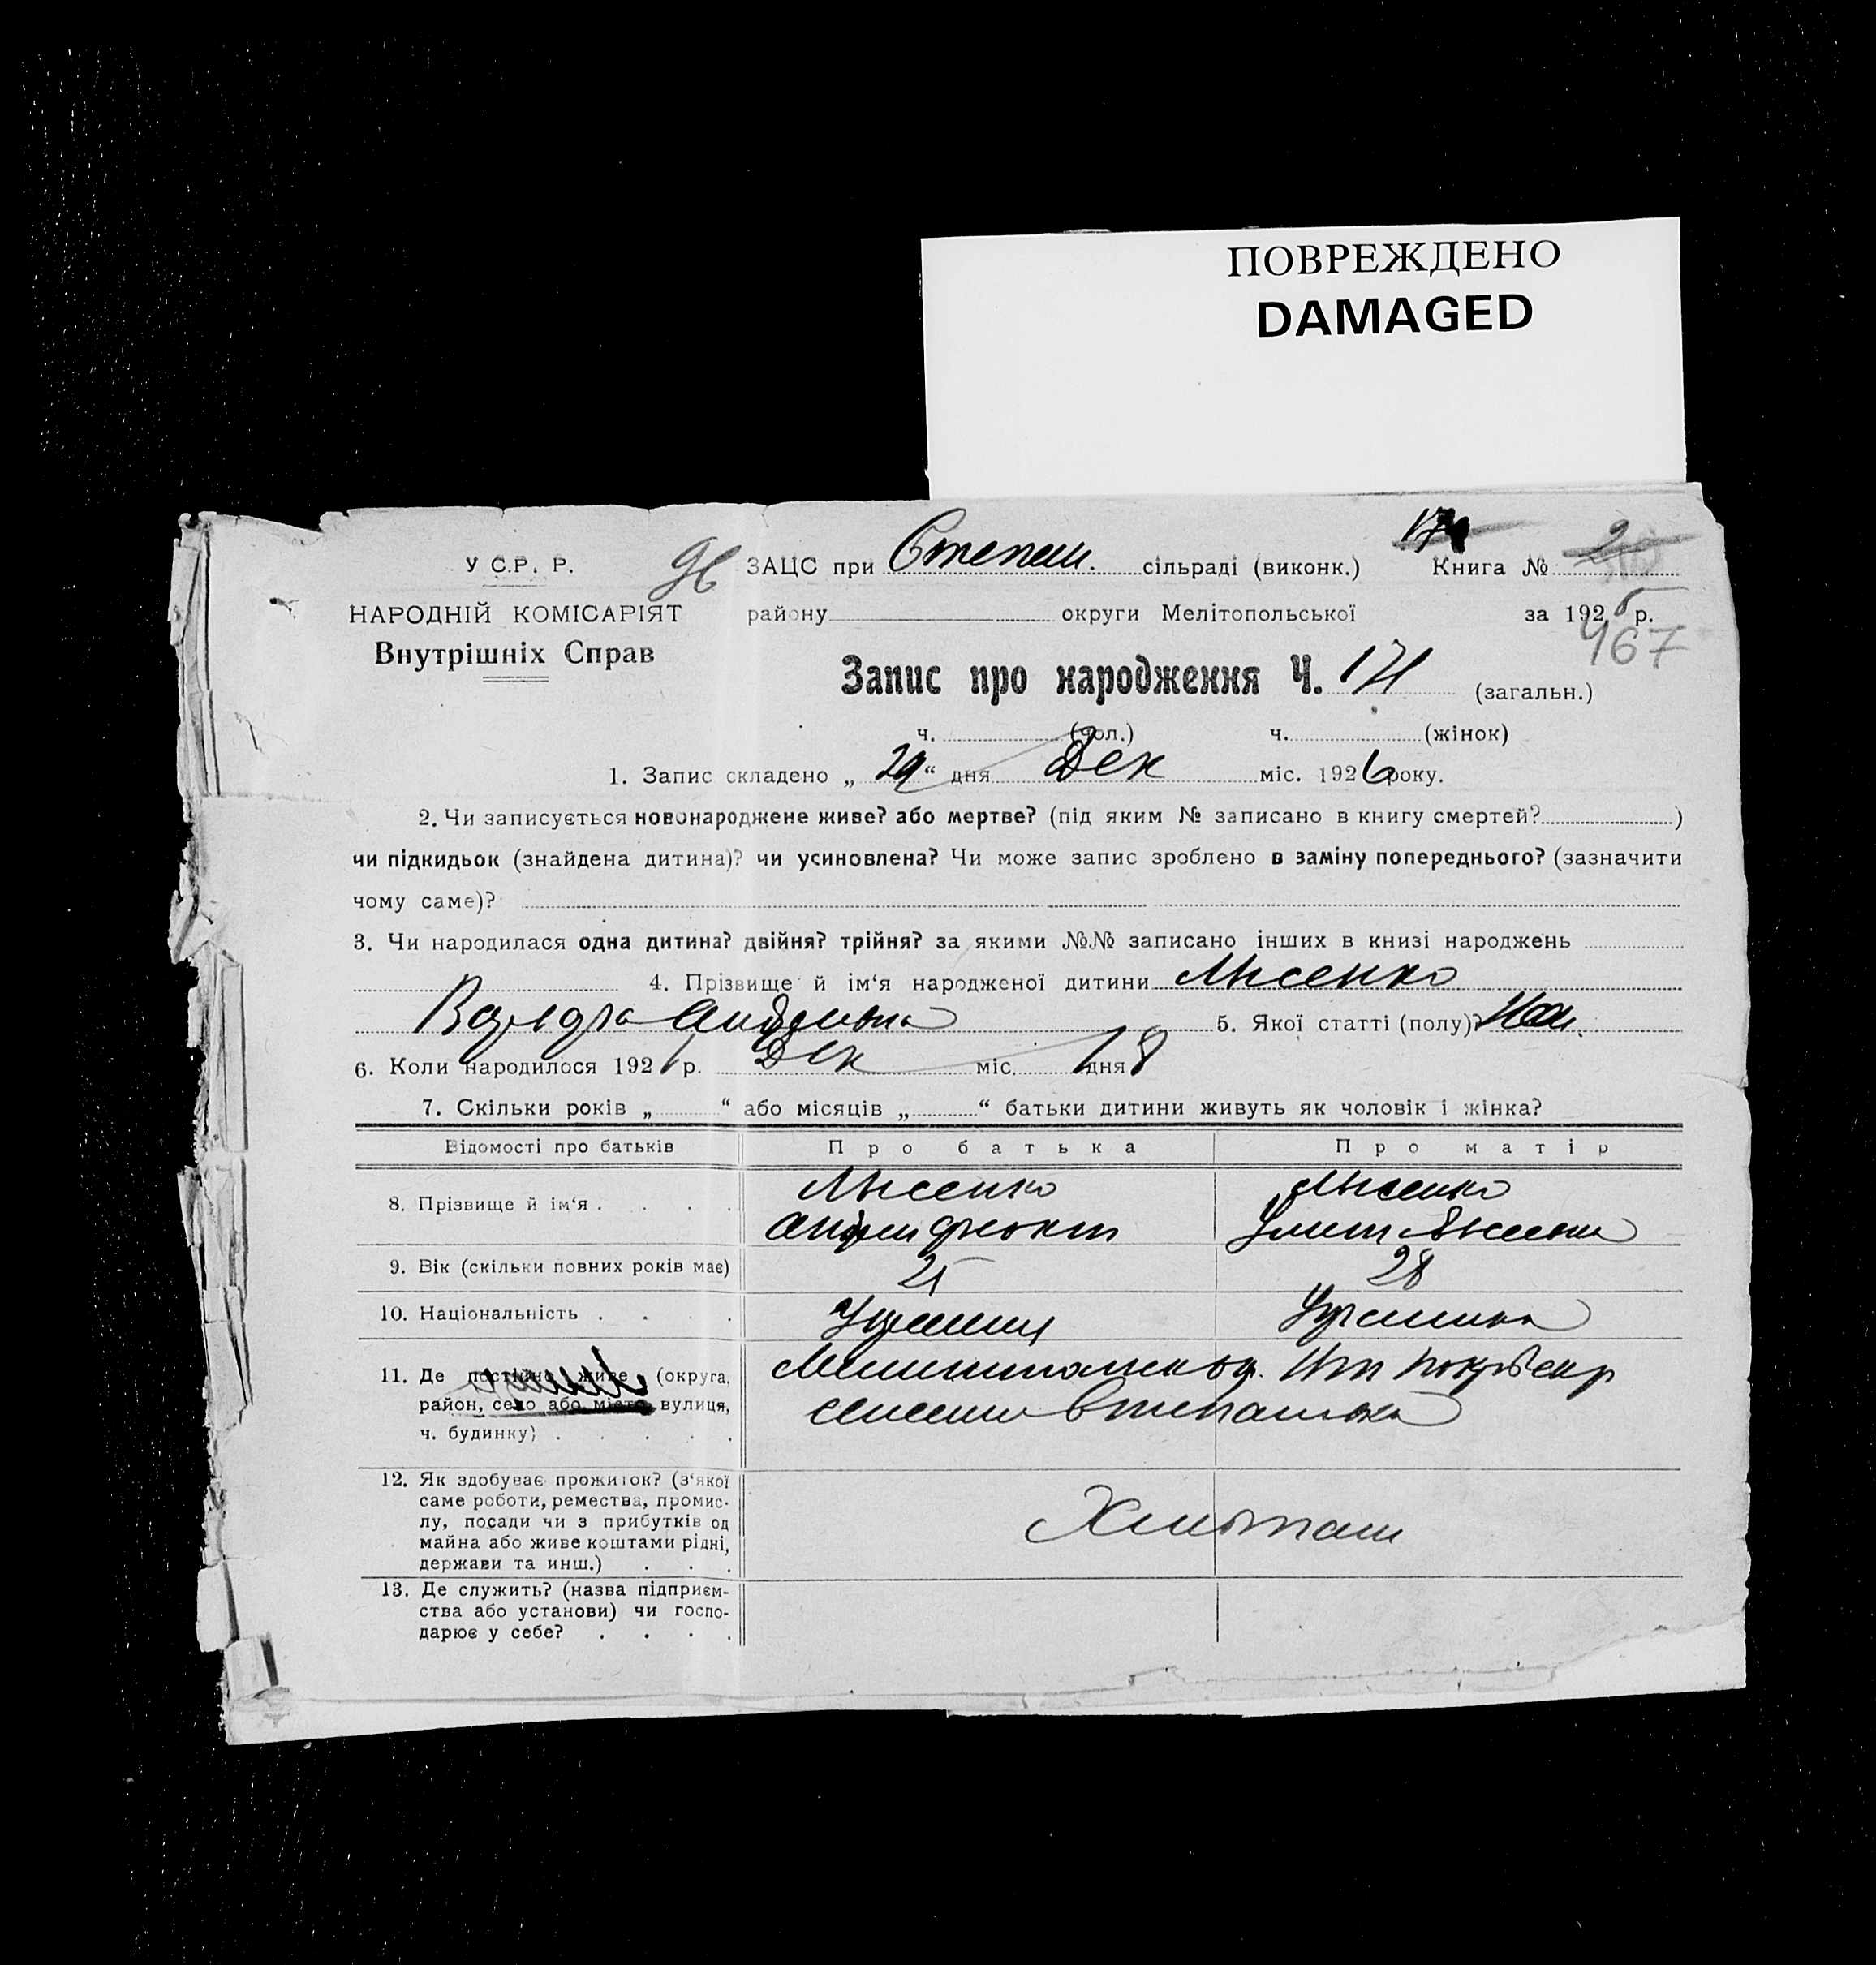 ПОВРЕЖДЕНО
DAMAGED
У С.Р. Р. 96 ЗАЦС при Степан. сільраді (виконк.) Книга №
НАРОДНІЙ КОМІСАРІЯТ району округи Мелітопольської за 1926 р.
467
Внутрішніх Справ
Запис про народження Ч. 171 (загальн.)
ч. (чол.) ч. (жінок)
1. Запис складено „ 29 “ дня Дек міс. 1926 року.
2. Чи записується новонароджене живе? або мертве? (під яким № записано в книгу смертей? )
чи підкидьок (знайдена дитина)? чи усиновлена? Чи може запис зроблено в заміну попереднього? (зазначити
чому саме)?
3. Чи народилася одна дитина? двійня? трійня? за якими №№ записано інших в книзі народжень
4. Прізвище й ім‘я народженої дитини Лысенко
5. Якої статті (полу)?
6. Коли народилося 192 р. Дек міс. 18 дня
7. Скільки років „ “ або місяців „ “ батьки дитини живуть як чоловік і жінка?
Відомості про батьків Про батька Про матір
8. Прізвище й ім‘я . . . . Лысенко Лысенко
9. Вік (скільки повних років має) 25 28
10. Національність . . . .
11. Де постійно живе (округа,
район, село або місто, вулиця,
ч. будинку) . . . . .
12. Як здобуває прожиток? (з‘якої
саме роботи, ремества, промис-
лу, посади чи з прибутків од
майна або живе коштами рідні,
держави та инш.) . . .
13. Де служить? (назва підприєм-
ства або установи) чи госпо-
дарює у себе? . . . .